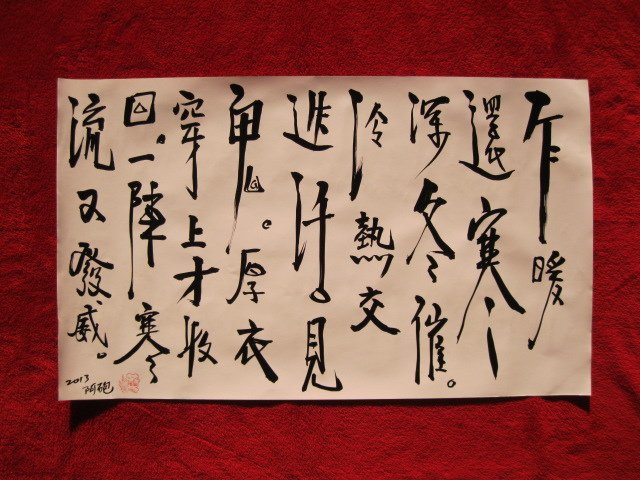 乍暖
還寒
深冬催。
冷熱交
迭。見
鬼。厚衣
穿上才收
回。一陣寒
流又發威。
2013
阿砲